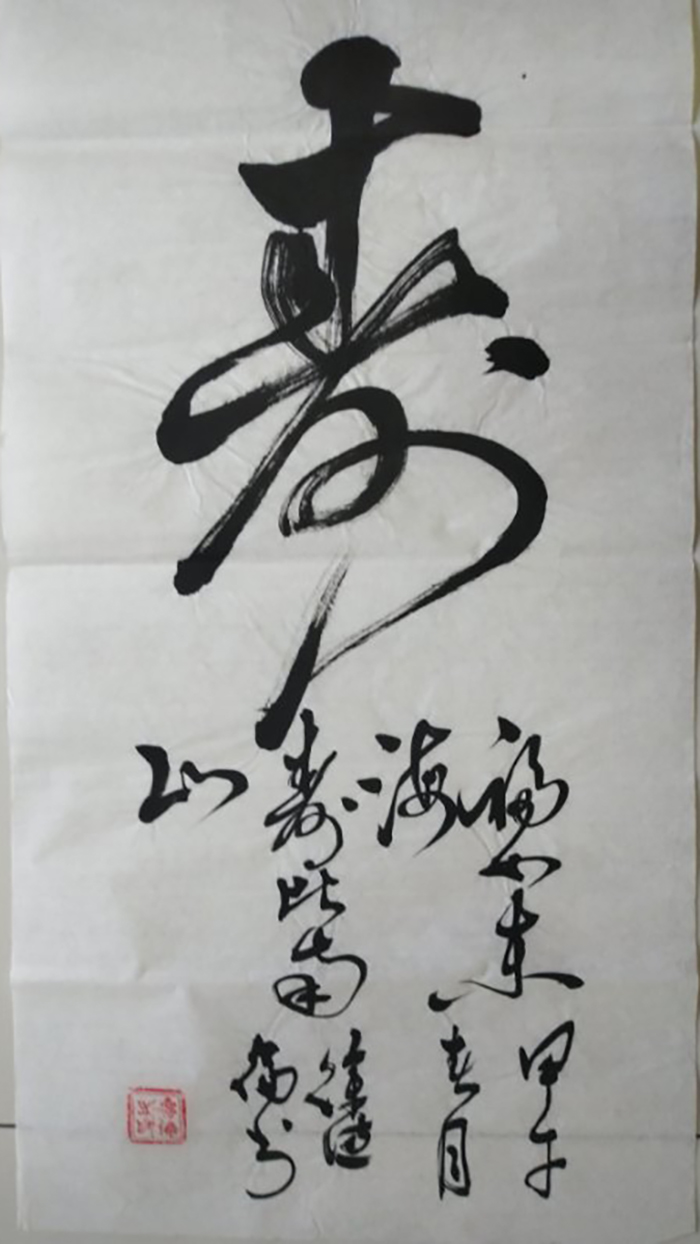 寿
福如东
海
寿比南
山
甲午
春月
徐
福书